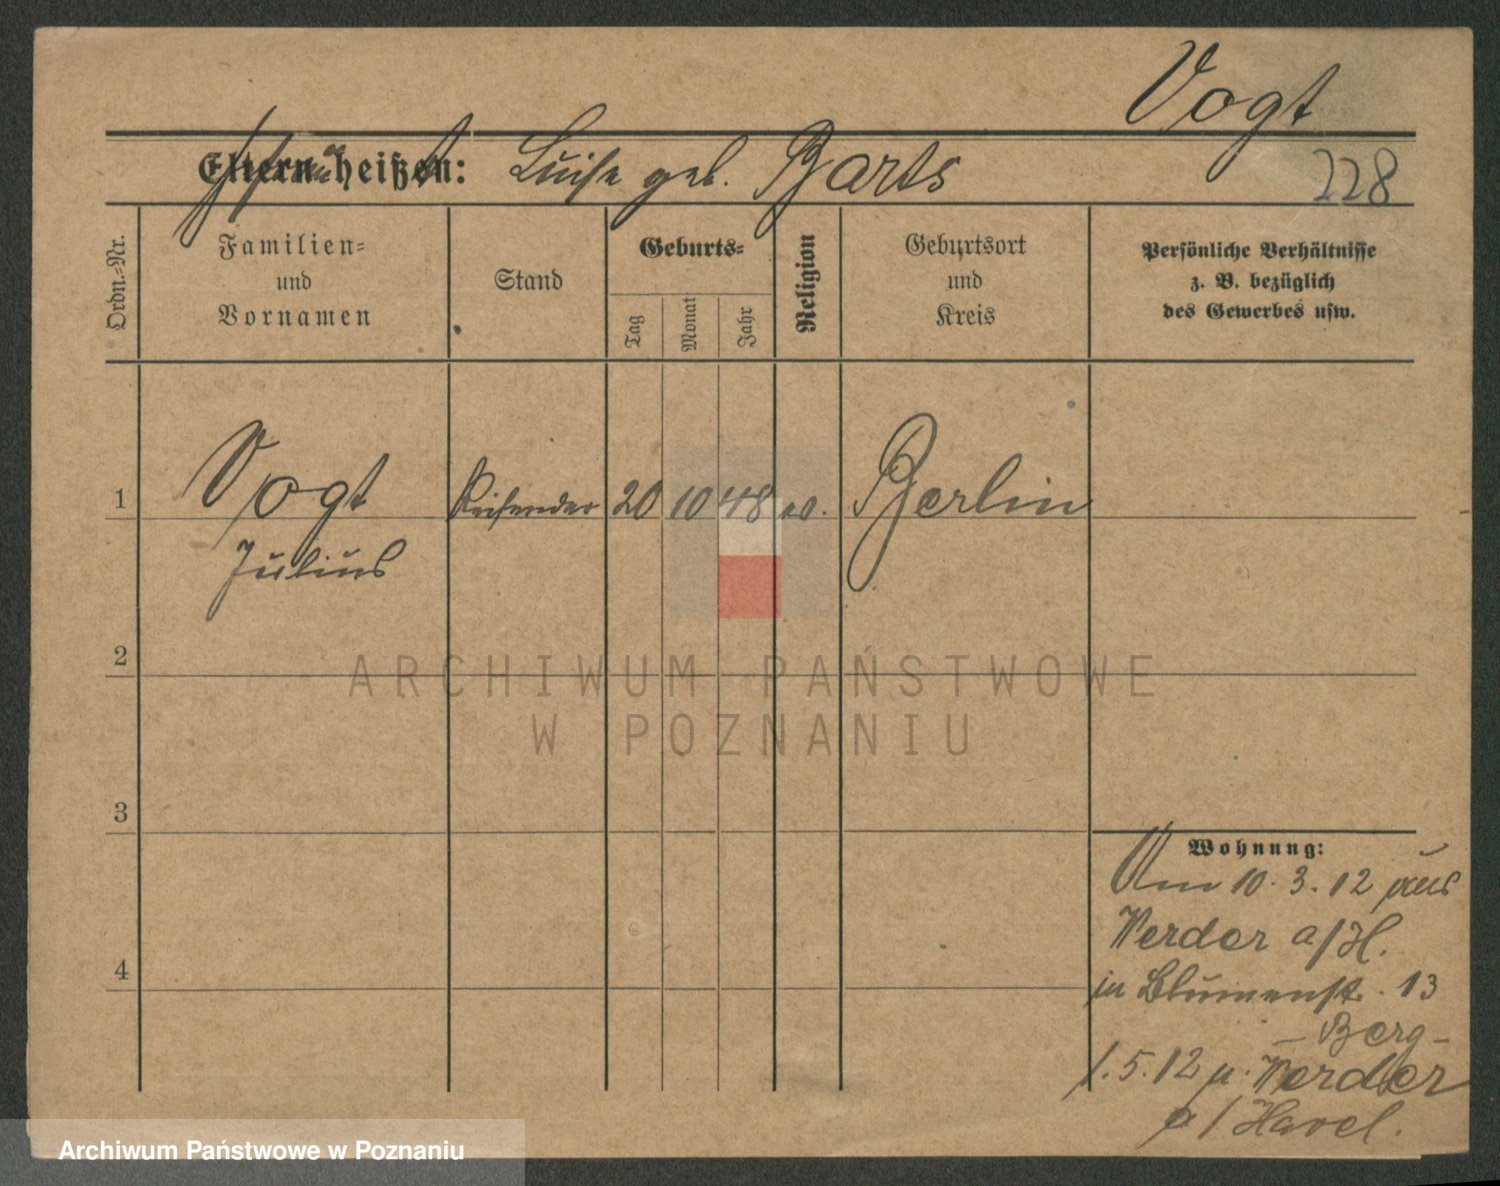 Vogt
Eltern heißen: Luise geb. Barts
228
Ordn.=Nr.
Familien=
und
Vornamen
Stand
Geburts=
Tag
Monat
Jahr
Religion
Geburtsort
und
Kreis
Persönliche Verhältnisse
z. B. bezüglich
des Gewerbes usw.
1
Vogt
Julius
Reisender
20
10
48
ev.
Berlin
2
3
4
ARCHIWUM PAŃSTWOWE
W POZNANIU
Wohnung:
Am 10. 3. 12 aus
Werder a/H.
in Blumenstr. 13
– Berg –
1. 5. 12 n. Werder
a/Havel.
Archiwum Państwowe w Poznaniu